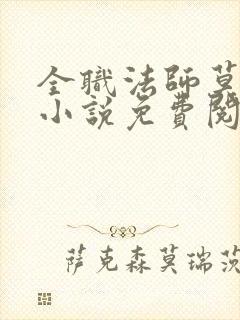 全職法師莫
小説免費閱
萨克森莫瑞茨